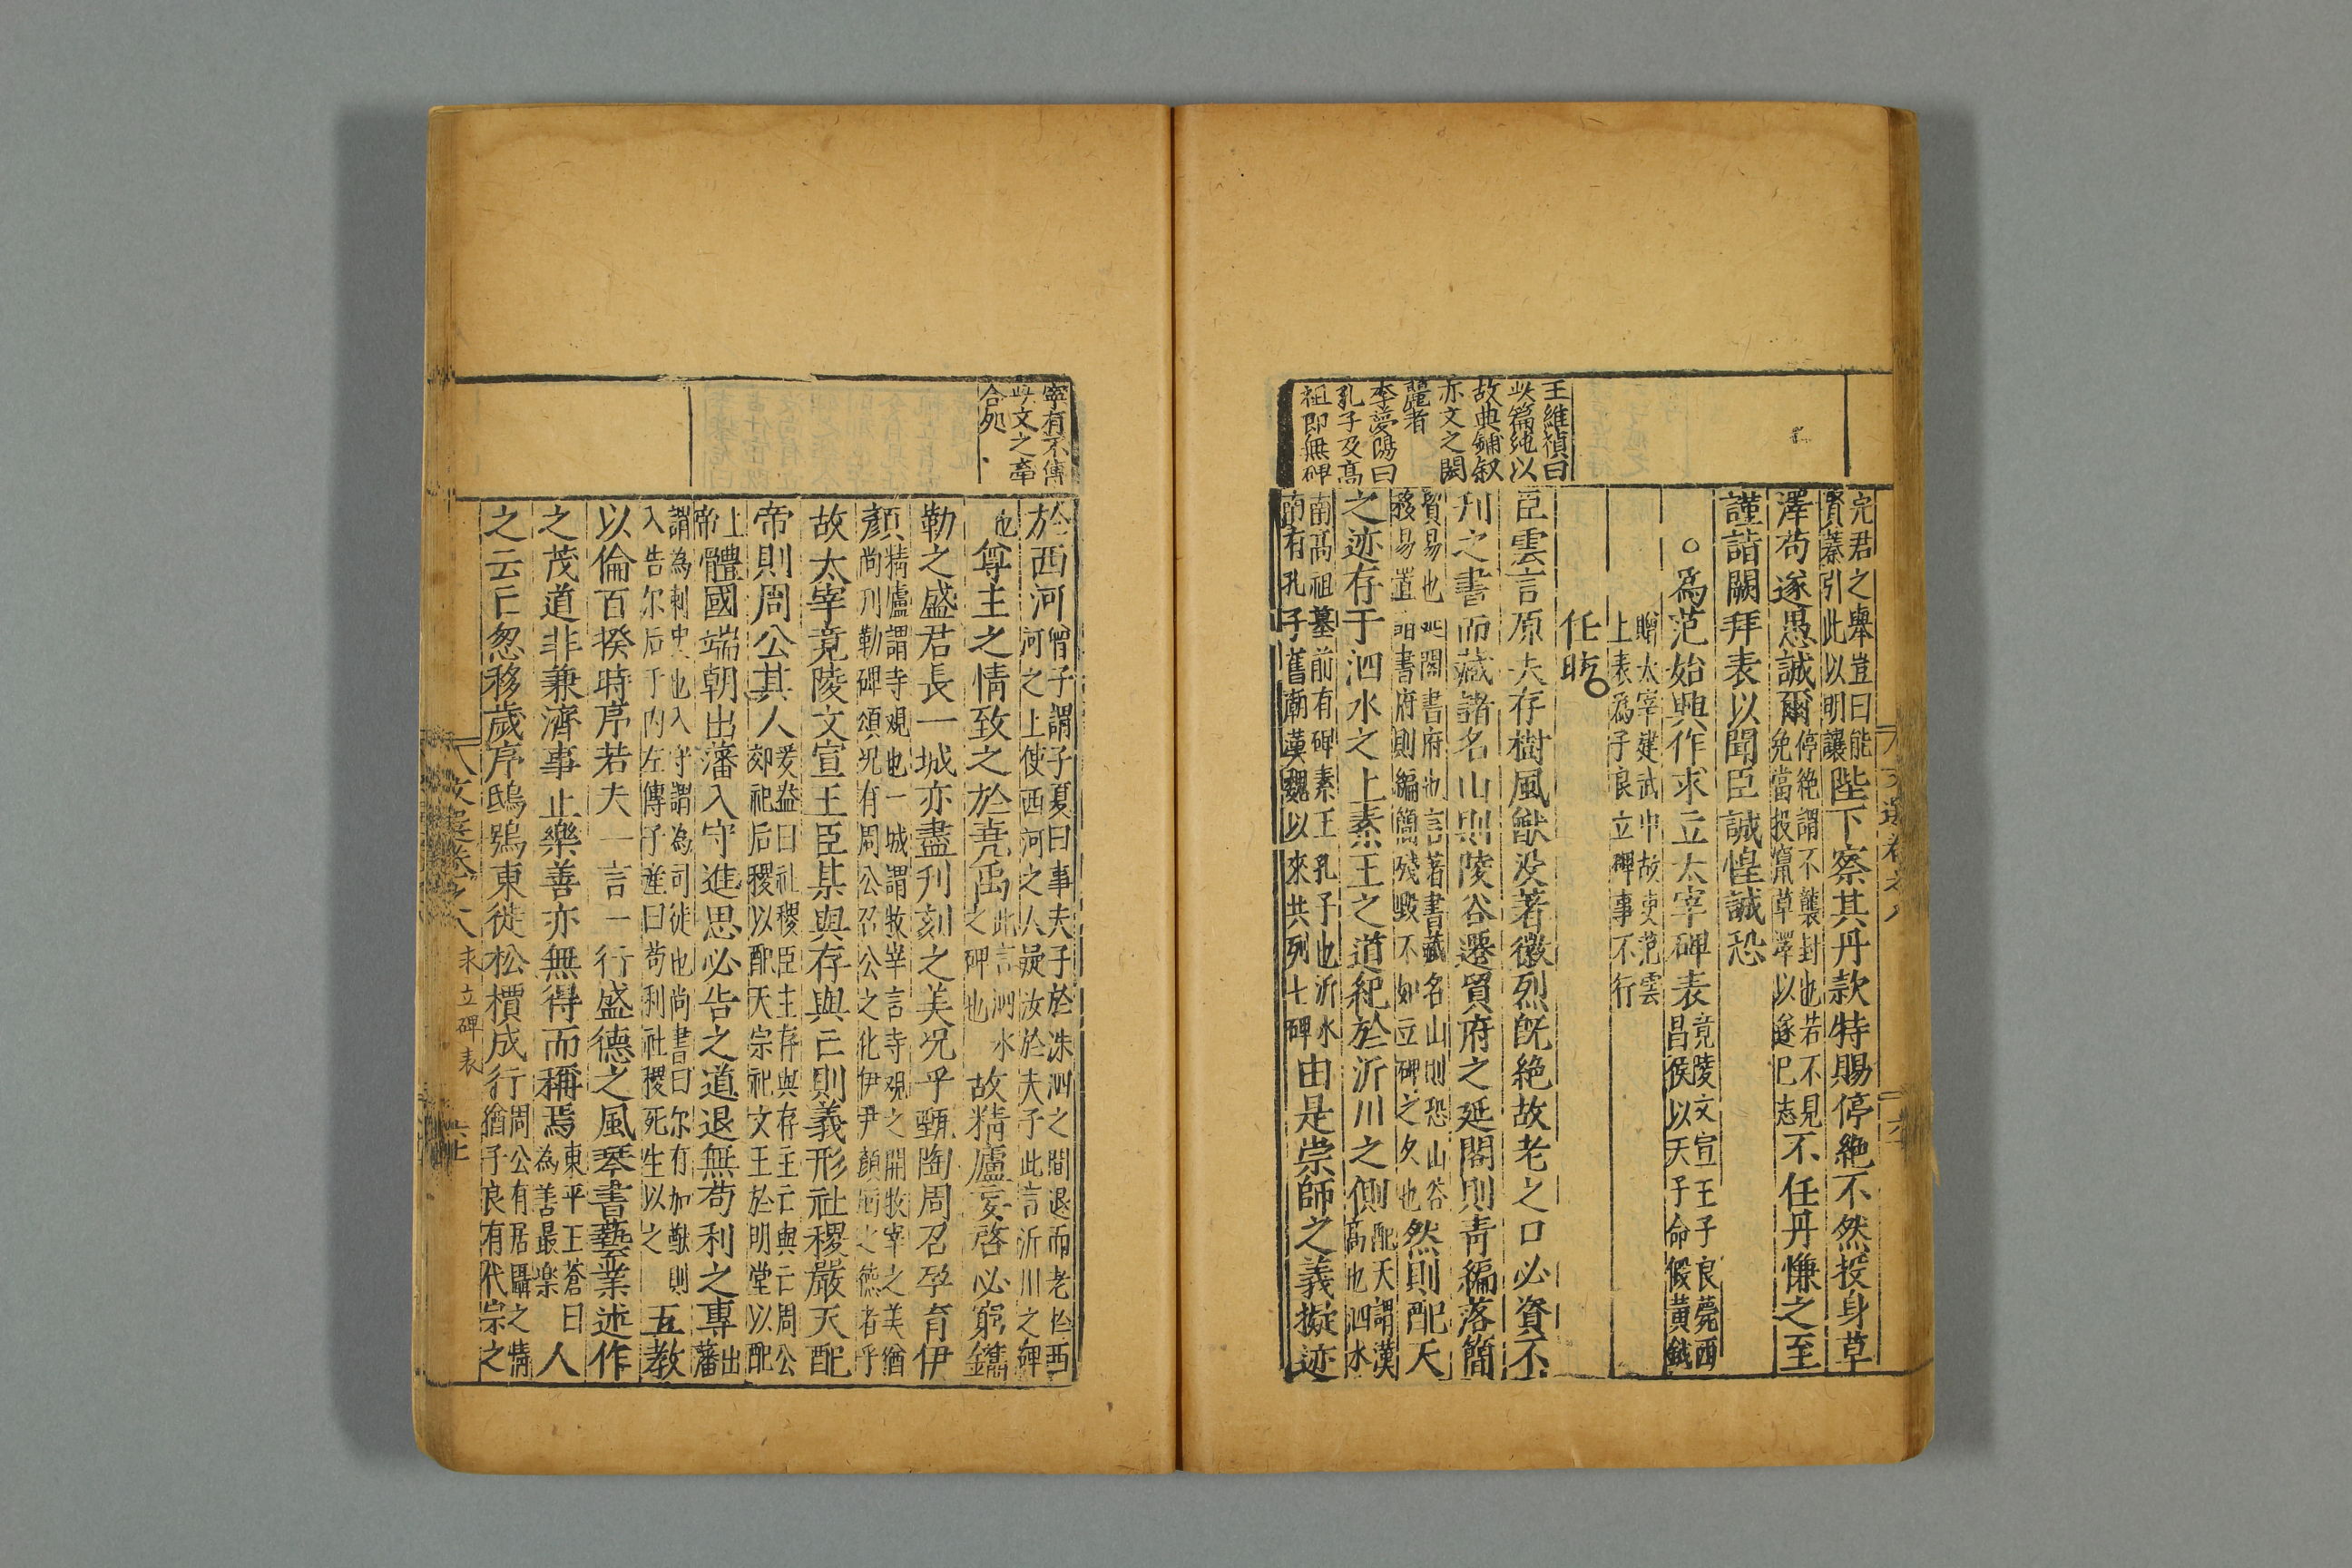 王維禎曰
此篇純以
故典鋪叙
亦文之閎
麗者
李夢陽曰
孔子及高
祖即無碑
完君之舉豈曰能
賢蓁引此以明讓陛下察其丹款特賜停絶不然投身草
澤苟遂愚誠爾停絶謂不襲封也若不見
免當投竄草澤以遂已志不任丹慊之至
謹詣闕拜表以聞臣誠惶誠恐
○爲范始興作求立太宰碑表竟陵文宣王子良薨西
昌侯以天子命假黃鉞
贈太宰建武中故吏范雲
上表爲子良立碑事不行
任昉
臣雲言原夫存樹風猷没著徽烈旣絶故老之口必資不
刋之書而藏諸名山則陵谷遷貿府之延閣則青編落簡
貿易也延閣書府也言著書藏名山則恐山谷
移易置諸書府則編簡殘毀不如立碑之久也然則配天
之迹存于泗水之上素王之道紀於沂川之側配天謂漢
高也泗水
南高祖墓前有碑素王孔子也沂水
南有孔子舊廟漢魏以來共列七碑由是崇師之義擬迹
寧有不傳
此文之牽
合処
於西河曾子謂子夏曰事夫子於洙泗之間退而老於西
河之上使西河之人疑汝於夫子此言沂川之碑
也尊主之情致之於堯禹此言泗水
之碑也故精廬妄啓必窮鐫
勒之盛君長一城亦盡刋刻之美况乎甄陶周召孕育伊
顏精廬謂寺觀也一城謂牧宰言寺觀之開牧宰之美猶
尚刋勒碑頌况有周公召公之化伊尹顏囘之德者乎
故太宰竟陵文宣王臣某與存與亡則義形社稷嚴天配
帝則周公其人爰盎曰社稷臣主存與存主亡與亡周公
郊祀后稷以配天宗祀文王於明堂以配
上
帝體國端朝出藩入守進思必告之道退無苟利之專出
藩
謂為刺史也入守謂為司徒也尚書曰尔有加猷則
入告尔后于内左傳子產曰苟利社稷死生以之五教
以倫百揆時序若夫一言一行盛德之風琴書藝業述作
之茂道非兼濟事止樂善亦無得而稱焉東平王蒼曰
為善最楽人
之云亡忽移歲序鴟鴞東徙松檟成行周公有居聶之情
猶子良有代宗之
文選卷之八 求立碑表